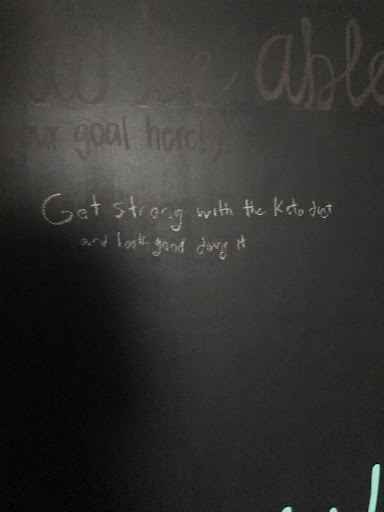 be able
our goal here!)
Get strong with the Keto diet
and look good doing it